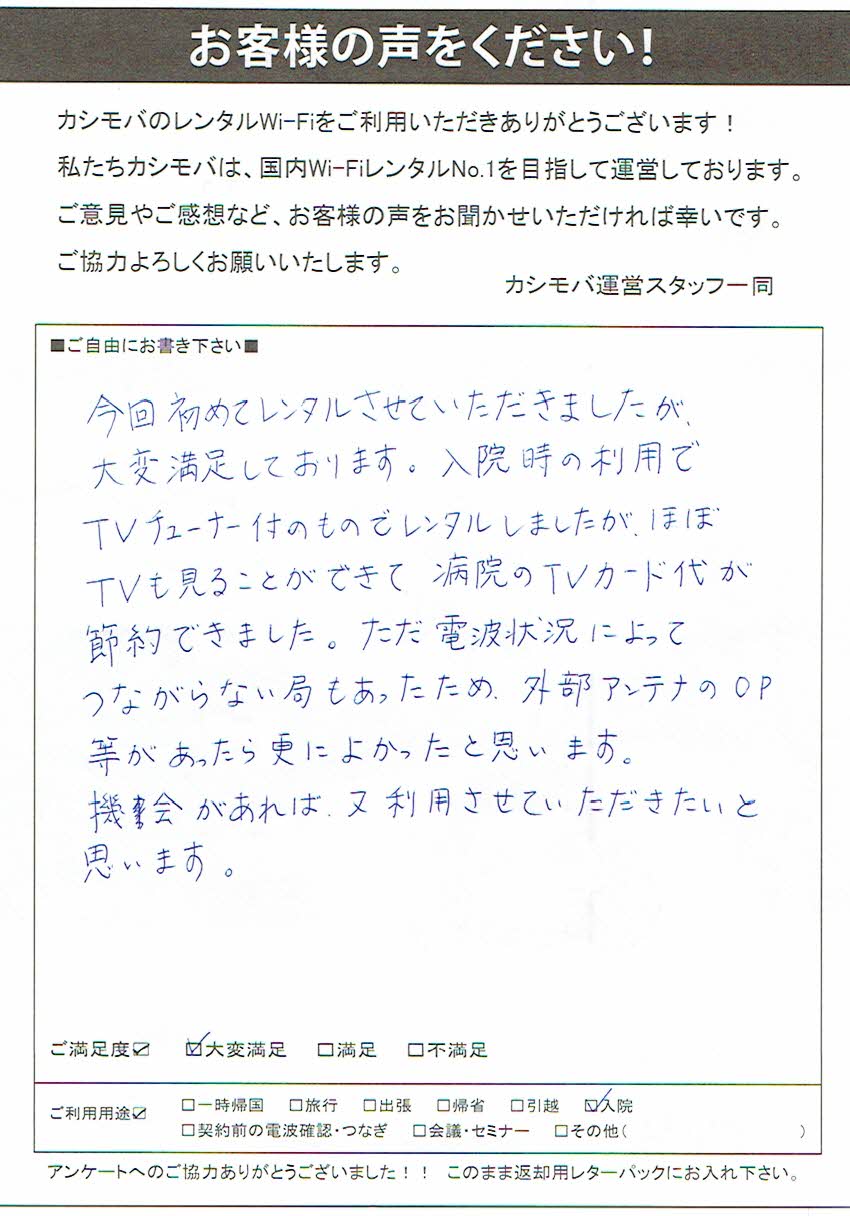 お客様の声をください!
カシモバのレンタルWi-Fiをご利用いただきありがとうございます!
私たちカシモバは、国内Wi-FiレンタルNo.1を目指して運営しております。
ご意見やご感想など、お客様の声をお聞かせいただければ幸いです。
ご協力よろしくお願いいたします。
カシモバ運営スタッフ一同
■ご自由にお書き下さい■
今回初めてレンタルさせていただきましたが、
大変満足しております。入院時の利用で
TVチューナー付のものでレンタルしましたが、ほぼ
TVも見ることができて 病院のTVカード代が
節約できました。ただ電波状況によって
つながらない局もあったため、外部アンテナのOP
等があったら更によかったと思います。
機会があれば、又利用させていただきたいと
思います。
ご満足度☑ ☑大変満足 □満足 □不満足
ご利用用途☑ □一時帰国 □旅行 □出張 □帰省 □引越 ☑入院
□契約前の電波確認・つなぎ □会議・セミナー □その他( )
アンケートへのご協力ありがとうございました!! このまま返却用レターパックにお入れ下さい。